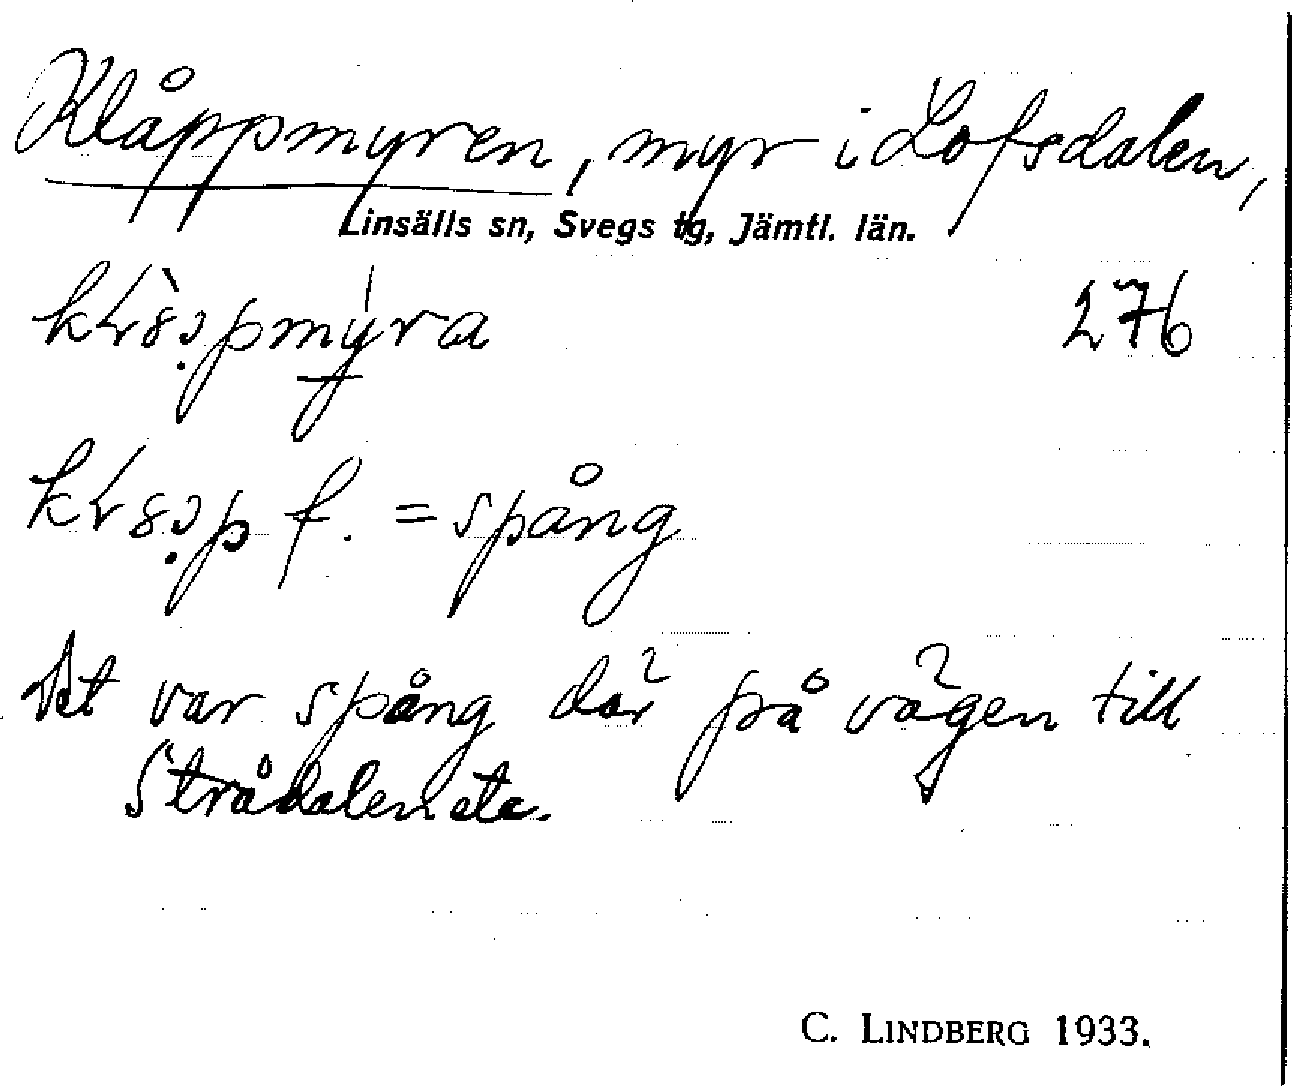 Klåppmyren, myr i Lofsdalen,
Linsälls sn, Svegs tg, Jämtl. län.
276
f. = spång
Det var spång där på vägen till
Strådalen etc.
C. LINDBERG 1933.